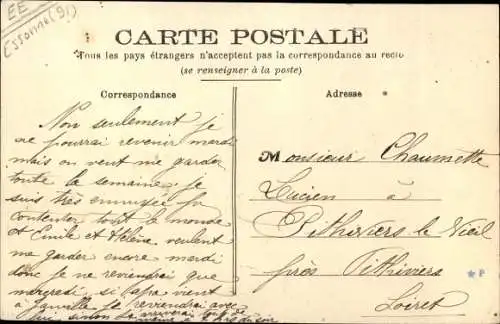 EE
Essonne (91)
CARTE POSTALE
Tous les pays étrangers n'acceptent pas la correspondance au recto
(se renseigner à la poste)
Correspondance
Non seulement je
ne pourrai revenir mardi
mais on veut me garder
toute la semaine, je
suis très ennuyée pr
contenter tout le monde
et Emile et Hélène veulent
me garder encore mardi
donc je ne reviendrai que
mercredi, si papa vient
à Janville je reviendrai avec
lui, sinon
Adresse
Monsieur Chaumette
Lucien à
Pithiviers le Vieil
près Pithiviers
Loiret
*P